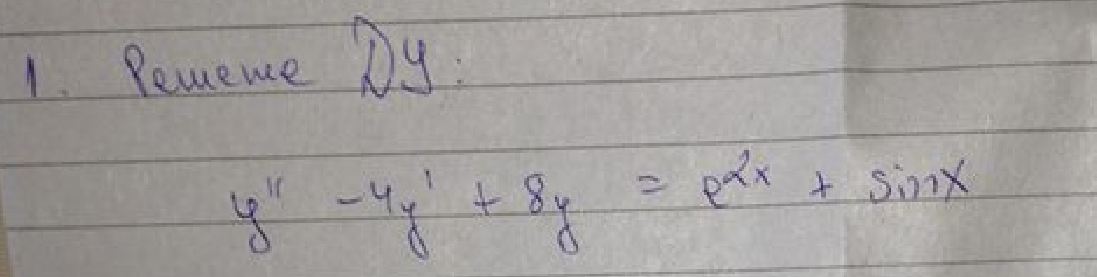 1. Решение ДУ:
y'' - 4y' + 8y = e^{2x} + sinx